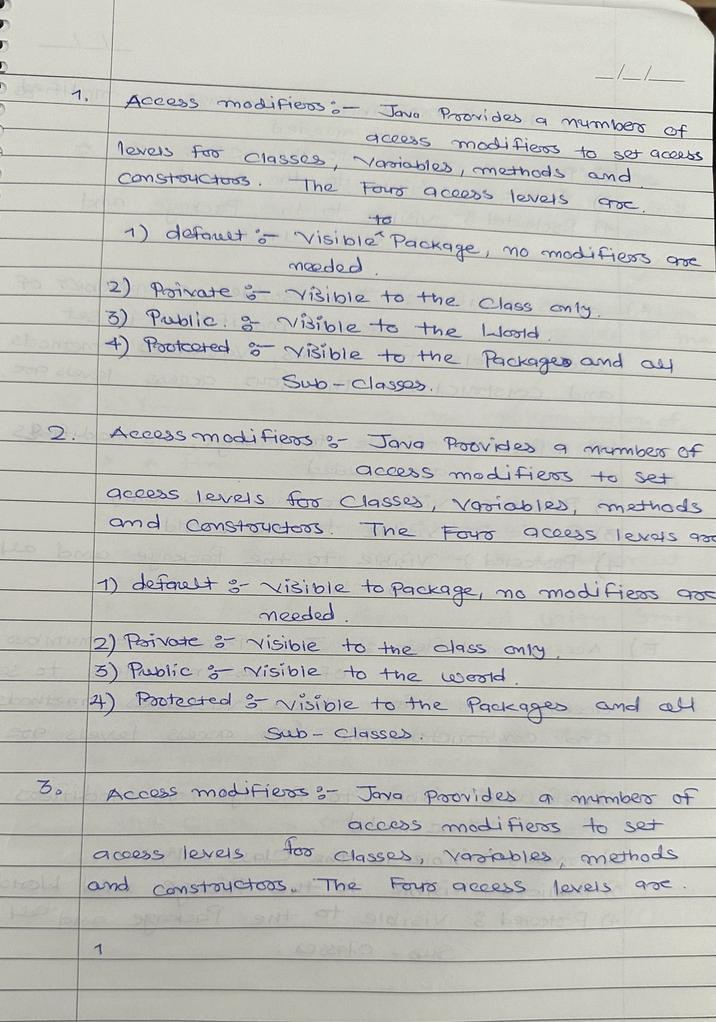 _/_/_
1. Access modifiers :- Java Provides a number of
access modifiers to set access
levels for classes, variables, methods and
constructors. The Four access levels are.
to
1) default :- Visible ^ Package, no modifiers are
needed.
2) Private :- Visible to the Class only.
3) Public :- Visible to the World.
4) Protcered :- Visible to the Packages and all
Sub-Classes.
2. Access modifiers :- Java Provides a number of
access modifiers to set
access levels for Classes, Variables, methods
and Constructors. The Four access levels are
1) default :- Visible to Package, no modifiers are
needed.
2) Private :- Visible to the class only.
3) Public :- Visible to the world.
4) Protected :- Visible to the Packages and all
Sub-Classes.
3. Access modifiers :- Java Provides a number of
access modifiers to set
access levels for Classes, Variables, methods
and Constructors. The Four access levels are.
1